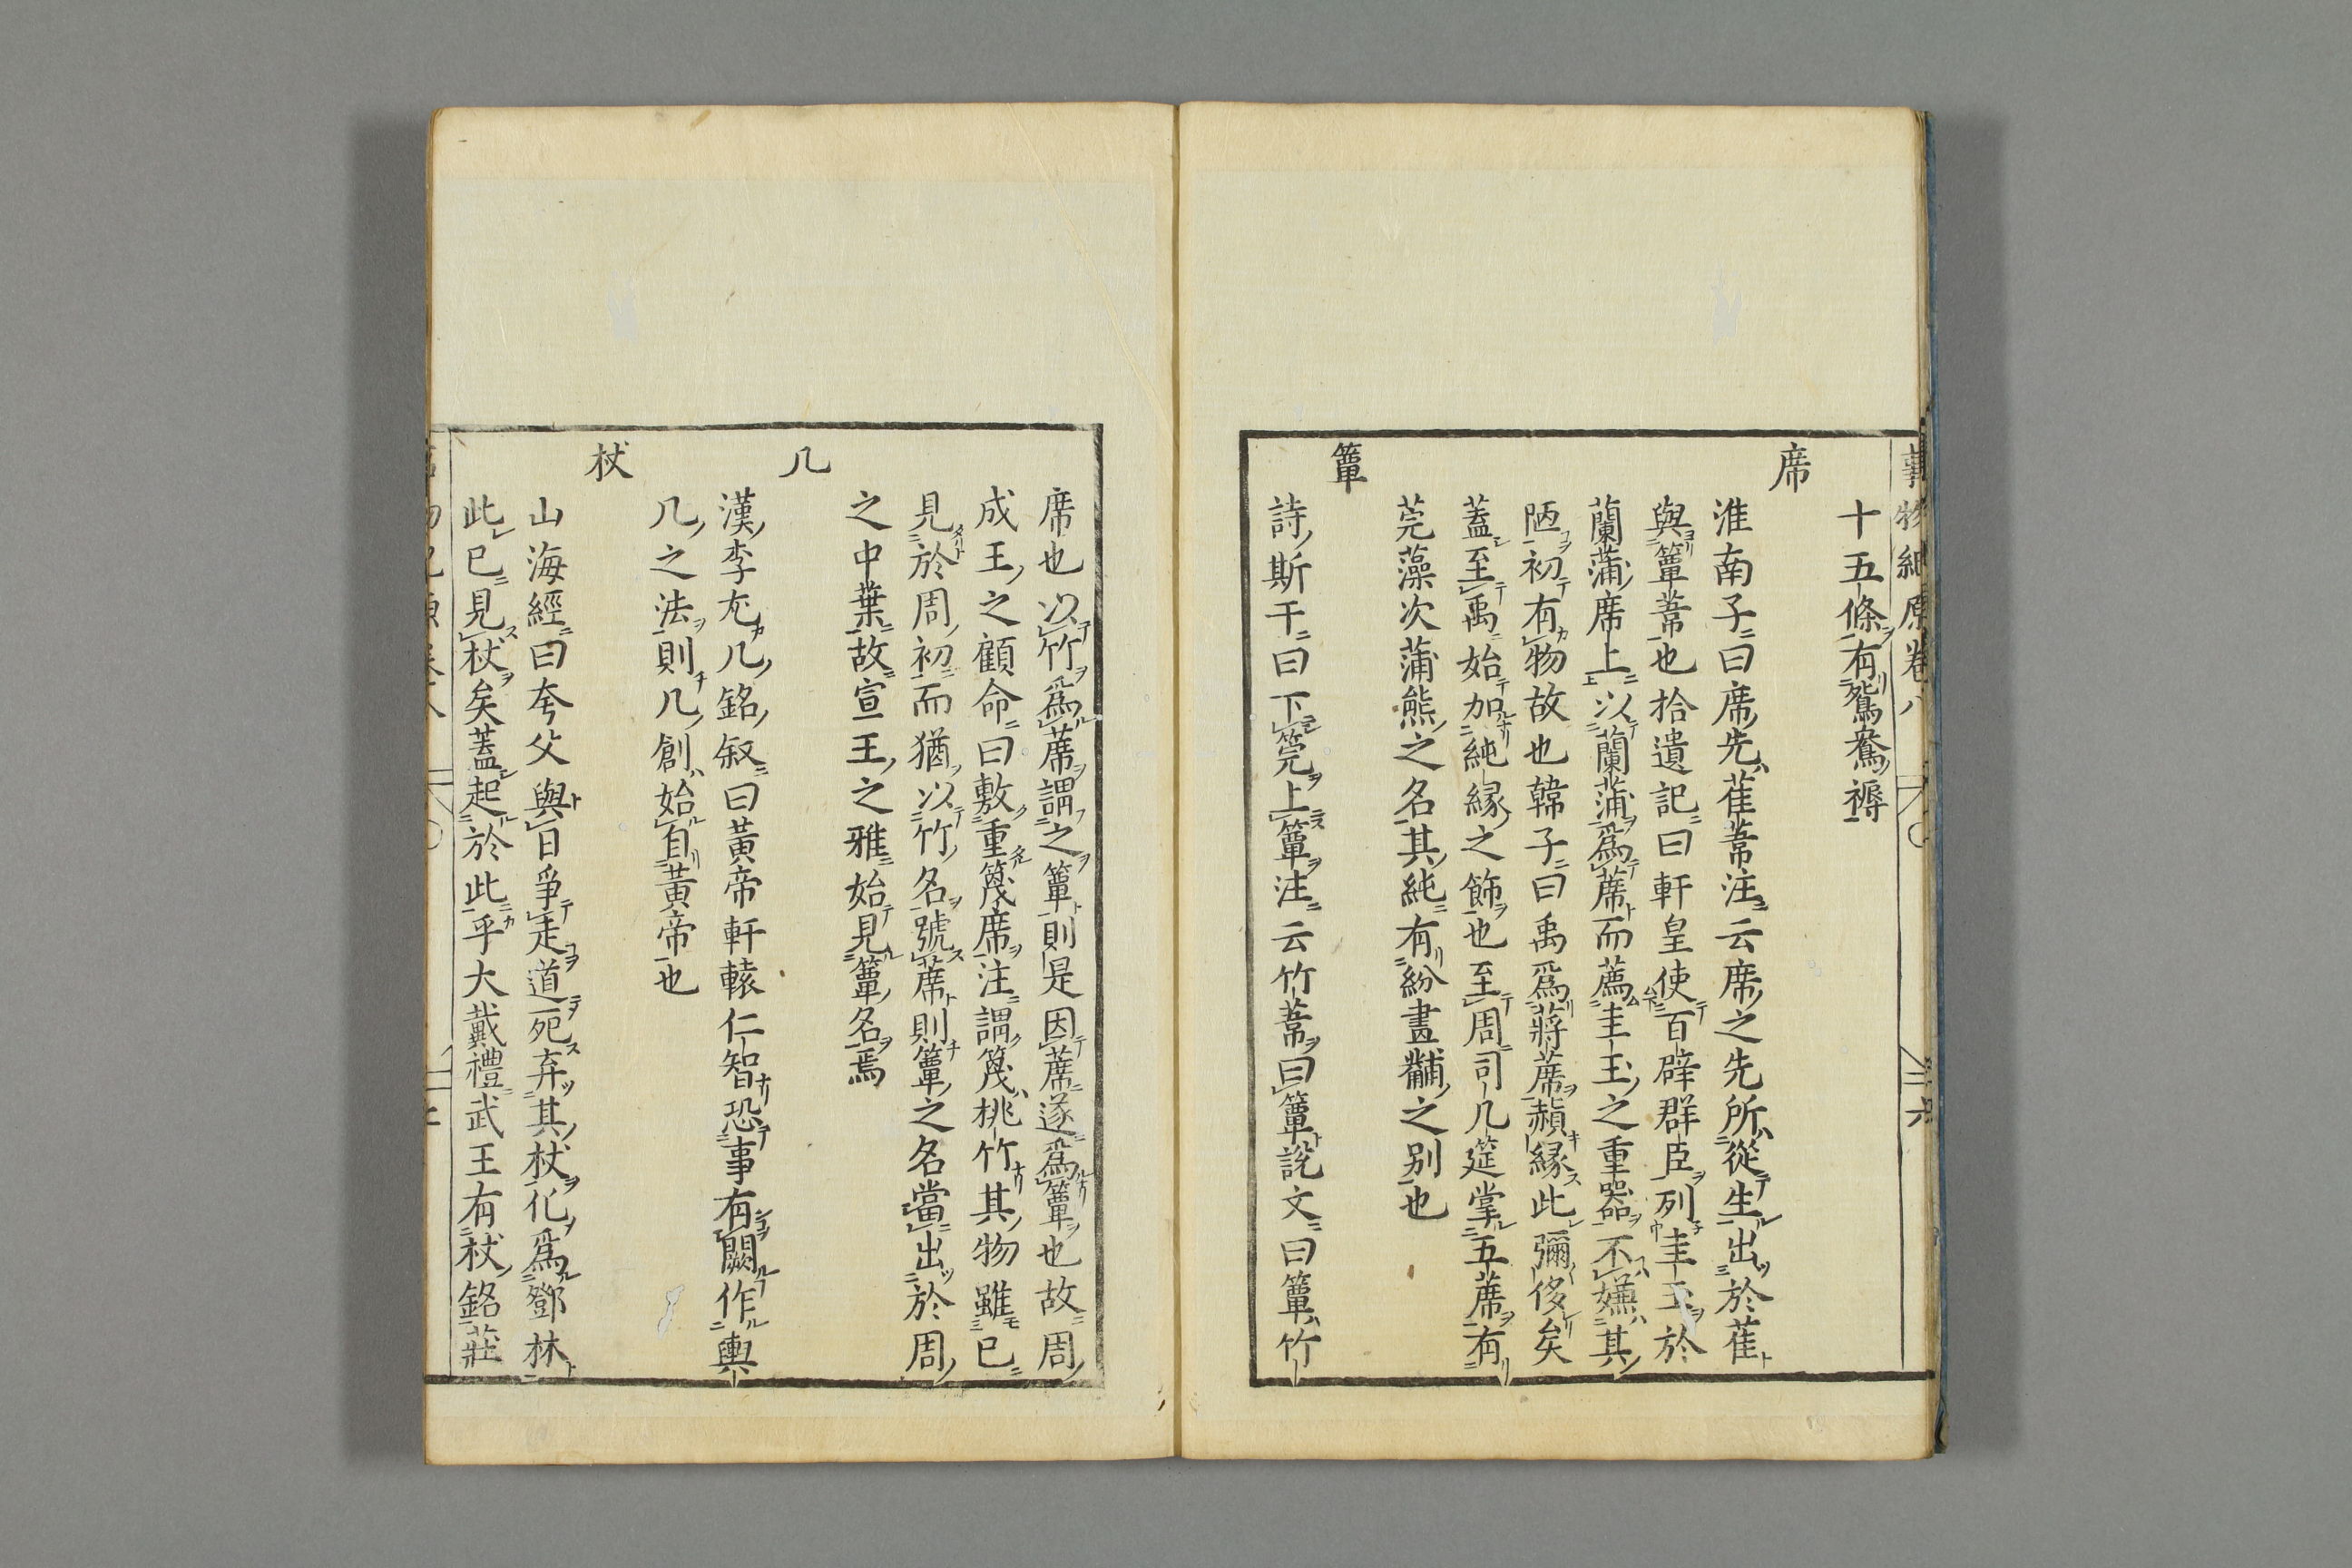 事物紀原卷八
十五條有鴛鴦褥
席
淮南子曰席先萑葦注云席之先所從生出於萑
與簟葦也拾遺記曰軒皇使百辟群臣列圭玉於
蘭蒲席上以蘭蒲爲蓆而薦圭玉之重器不嫌其
陋初有物故也韓子曰禹爲蔣蓆頳緣此彌侈矣
蓋至禹始加純緣之飾也至周司几筵掌五蓆有
莞藻次蒲熊之名其純有紛畫黼之别也
簟
詩斯干曰下筦上簟注云竹葦曰簟說文曰簟竹
席也以竹爲蓆謂之簟則是因蓆遂爲簟也故周
成王之顧命曰敷重篾席注謂篾桃竹其物雖已
見於周初而猶以竹名號蓆則簟之名當出於周
之中葉故宣王之雅始見簟名焉
几
漢李尤几銘叙曰黃帝軒轅仁智恐事有闕作輿
几之法則几創始自黃帝也
杖
山海經曰夸父與日爭走道死弃其杖化爲鄧林
此已見杖矣蓋起於此乎大戴禮武王有杖銘莊